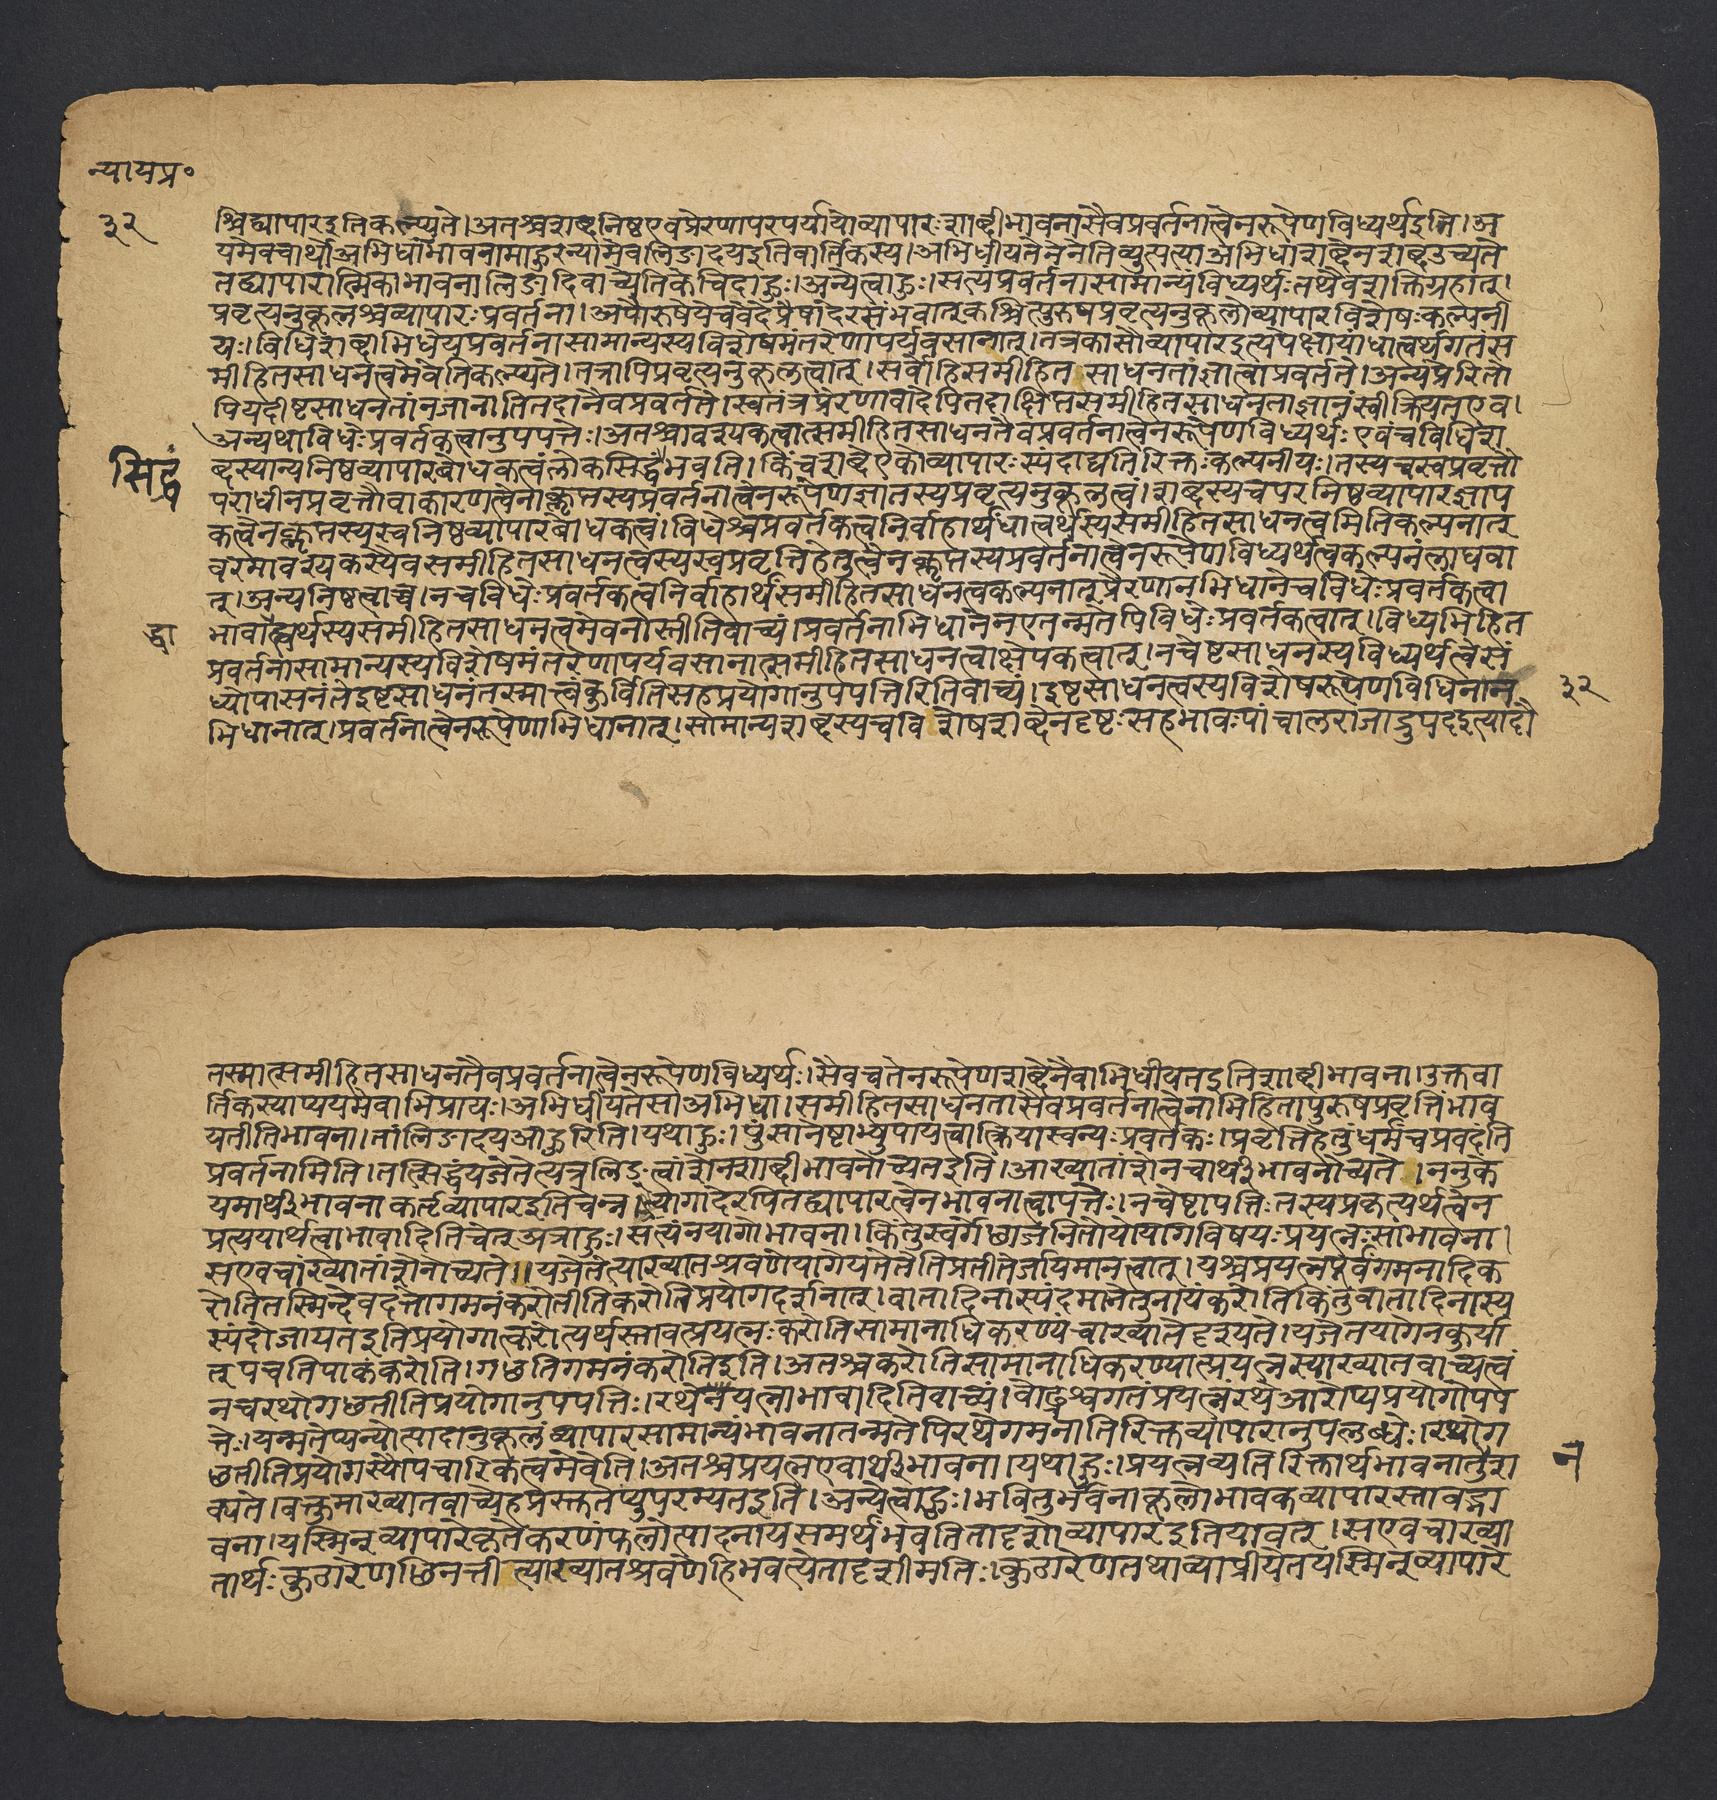 न्यायप्र॰
३२
श्चिद्यापारइतिकल्प्यते।अतश्चशब्दनिष्ठएवप्रेरणापरपर्यायोव्यापारःशाब्दीभावनासैवप्रवर्तनात्वेनरूपेणविध्यर्थइति।अ
यमेवचार्थोअभिधाभावनामाहुरन्यामेवलिङादयइतिवार्तिकस्य।अभिधीयतेनेनेतिव्युत्पत्याअभिधाशब्देनशब्दउच्यते
तद्यापारात्मिकाभावनालिङादिवाच्येतिकेचिदाहुः।अन्येत्वाहुः।सत्यंप्रवर्तनासामान्यंविध्यर्थःतथैवशक्तिग्रहात्।
प्रवृत्यनुकूलश्चव्यापारःप्रवर्तना।अपौरुषेयेचवेदेप्रैषादेरसंभवात्कश्चित्पुरुषप्रवृत्यनुकूलोव्यापारविशेषःकल्पनी
यः।विधिशब्दाभिधेयप्रवर्तनासामान्यस्यविशेषमंतरेणापर्यवसानात्।तत्रकासौव्यापारइत्यपेक्षायांधात्वर्थगतस
मीहितसाधनत्वमेवेतिकल्प्यते।तत्रापिप्रवृत्यनुकूलत्वात्।सर्वोहिसमीहित साधनतांज्ञात्वाप्रवर्तते।अन्यप्रेरितो
पियदीष्टसाधनतांनजानातितदानैवप्रवर्तते।स्वतंत्रप्रेरणावादेपितदाक्षिप्तसमीहितसाधनताज्ञानंस्वीक्रियतएव।
अन्यथाविधेःप्रवर्तकत्वानुपपत्तेः।अतश्चावश्यकत्वात्समीहितसाधनतैवप्रवर्तनात्वेनरूपेणविध्यर्थःएवंचविधिश
सिद्धं
ब्दस्यान्यनिष्ठव्यापारबोधकत्वंलोकसिद्धंभवति।किंचशब्देएकोव्यापारःस्पंदाद्यतिरिक्तःकल्पनीयः।तस्यचस्वप्रवृत्तौ
पराधीनप्रवृत्तौवाकारणत्वेनाकॢप्तस्यप्रवर्तनात्वेनरूपेणज्ञातस्यप्रवृत्यनुकूलत्वं।शब्दस्यचपरनिष्ठव्यापारज्ञाप
कत्वेनकॢप्तस्यस्वनिष्ठव्यापारबोधकत्वं।विधेश्चप्रवर्तकत्वनिर्वाहार्थंधात्वर्थस्यसमीहितसाधनत्वमितिकल्पनात्
वरमावश्यकस्यैवसमीहितसाधनत्वस्यस्वप्रवृत्तिहेतुत्वेनकॢप्तस्यप्रवर्तनात्वेनरूपेणविध्यर्थत्वकल्पनंलाघवा
त्।अन्यनिष्ठत्वाच्च।नचविधेःप्रवर्तकत्वनिर्वाहार्थंसमीहितसाधनत्वकल्पनात्प्रेरणानभिधानेचविधेःप्रवर्तकत्वा
द्धा
भावाद्ध्वर्थस्यसमीहितसाधनत्वमेवनास्तीतिवाच्यं।प्रवर्तनाभिधानेनएतन्मतेपिविधेःप्रवर्तकत्वात्।विध्यभिहित
प्रवर्तनासामान्यस्यविशेषमंतरेणापर्यवसानात्समीहितसाधनत्वाक्षेपकत्वात्।नचेष्टसाधनस्यविध्यर्थत्वेसं
ध्योपासनंतेइष्टसाधनंतस्मात्त्वंकुर्वितिसहप्रयोगानुपपत्तिरितिवाच्यं।इष्टसाधनत्वस्यविशेषरूपेणविधिनान
३२
भिधानात्।प्रवर्तनात्वेनरूपेणाभिधानात्।सामान्यशब्दस्यचवि शेषशब्देनदृष्टःसहभावःपांचालराजोद्रुपदइत्यादौ
तस्मात्समीहितसाधनतैवप्रवर्तनात्वेनरूपेणविध्यर्थः।सैवचतेनरूपेणशब्देनैवाभिधीयतइतिशाब्दीभावना।उक्तवा
र्तिकस्याप्ययमेवाभिप्रायः।अभिधीयतेसाअभिधा।समीहितसाधनतासैवप्रवर्तनात्वेनाभिहितापुरुषप्रवृत्तिंभाव
यतीतिभावना।तांलिङादयआहुरिति।यथाहुः।पुंसांनेष्टाभ्युपायत्वात्क्रियास्वन्यःप्रवर्तकः।प्रवृत्तिहेतुंधर्मंचप्रवदंति
प्रवर्तनामिति।तत्सिद्धंयजेतेत्यत्रलिङ्त्वांशेनशाब्दीभावनोच्यतइति।आख्यातांशेनचार्थीभावनोच्यते ।ननुके
यमार्थीभावना कर्तृव्यापारइतिचेन्न।यागादेरपितद्यापारत्वेनभावनात्वापत्तेः।नचेष्टापत्तिःतस्यप्रकृत्यर्थत्वेन
प्रत्ययार्थत्वाभावादितिचेत्अत्राहुः।सत्यंनयागोभावना।किंतुस्वर्गेछाजनितोयोयागविषयःप्रयत्नःसाभावना।
सएवचाख्यातांशेनोच्यते॥यजेतेत्याख्यातश्रवणेयागेयततेतिप्रतीतेर्जायमानत्वात्।यश्चप्रयत्नपूर्वंगमनादिक
रोतितस्मिन्देवदत्तोगमनंकरोतीतिकरोतिप्रयोगदर्शनात्।वातादिनास्पंदमानेतुनायंकरोतिकिंतुवातादिनास्य
स्पंदोजायतइतिप्रयोगात्करोत्यर्थस्तावत्प्रयत्नःकरोतिसामानाधिकरण्यंचाख्यातेदृश्यते।यजेतयागेनकुर्या
त्पचतिपाकंकरोति।गछतिगमनंकरोतिइति।अतश्चकरोतिसामानाधिकरण्यात्प्रयत्नस्याख्यातवाच्यत्वं
नचरथोगछतीतिप्रयोगानुपपत्तिः।रथेनयत्नाभावादितिवाच्यं।वोढ्रश्वगतंप्रयत्नंरथेआरोप्यप्रयोगोपप
त्तेः।यन्मतेप्यन्योत्पादानुकूलंव्यापारसामान्यंभावनातन्मतेपिरथेगमनातिरिक्तव्यापारानुपलब्धेः।रथोग
छतीतिप्रयोगस्यौपचारिकत्वमेवेति।अतश्चप्रयत्नएवार्थीभावना।यथाहुः।प्रयत्नव्यतिरिक्तार्थभावनातुश
न
क्यते।वक्तुमाख्यातवाच्येहप्रस्कतेत्युपरम्यतइति।अन्येत्वाहुः।भवितुर्भवनाकूलोभावकव्यापारस्तावद्भा
वना।यस्मिन्व्यापारेकृतेकरणंफलोत्पादनायसमर्थंभवतितादृशोव्यापारइतियावत्।सएवचाख्या
तार्थःकुठारेणछिनत्ती त्याख्यातश्रवणेहिभवत्येतादृशीमतिः।कुठारेणतथाव्याप्रीयेतयस्मिन्व्यापारे